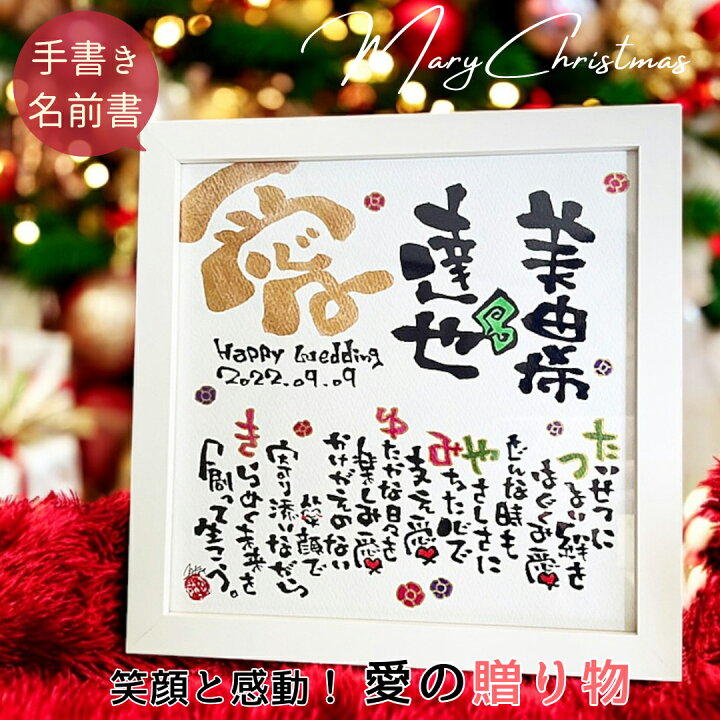 手書き
名前書
Mary Christmas
愛
美由希
達也
Happy Wedding
2022.09.09
たいせつに
つよい絆を
はぐくみ愛
どんな時も
やさしさに
みちた心で
支え愛
ゆたかな日々を
楽しみ愛
かけがえのない
笑顔で
寄り添いながら
きらめく未来を
創って生こう。
笑顔と感動！愛の贈り物